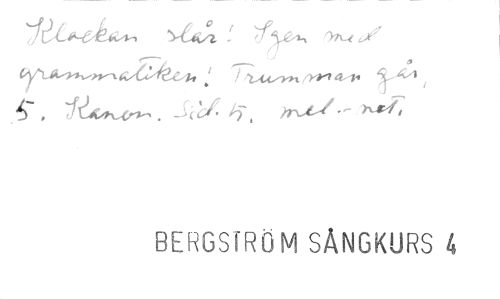 Klockan slår! Igen med
grammatiken! Trumman går,
5. Kanon. Sid. 5. mel.-not.
BERGSTRÖM SÅNGKURS 4